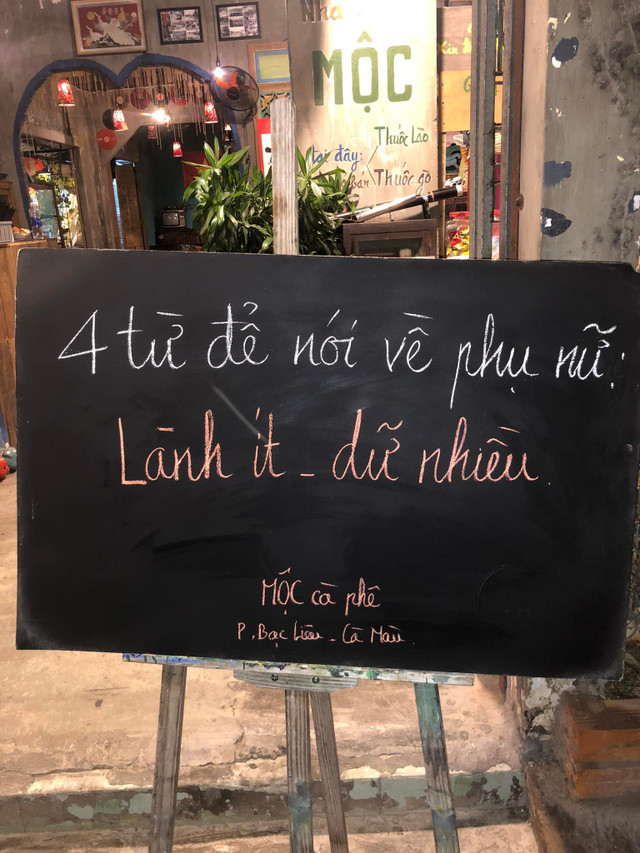 Nhà
MỘC
Thuốc Lào
Tại đây:
bán Thuốc gò
4 từ để nói về phụ nữ:
Lành ít - dữ nhiều.
MỘC cà phê
P. Bạc Liêu - Cà Mau.